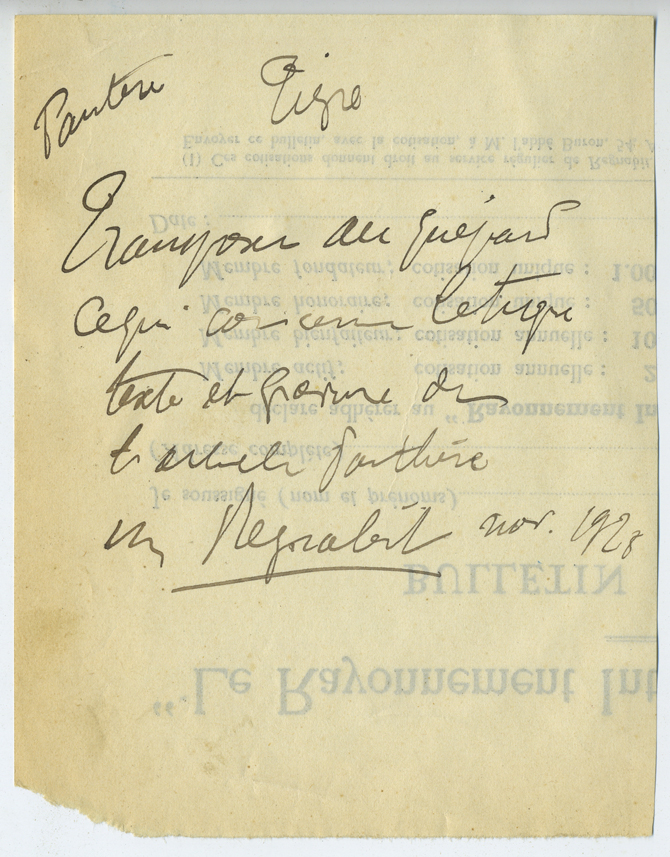 Pantère Tigre
Transposer au guépard
ce qui concerne le tigre
texte et gravure de
l'article Panthère
in Regnabit nov. 1928
"Le Rayonnement Int
BULLETIN
Je soussigné (nom et prénoms)
(Adresse complète)
déclare adhérer au "Rayonnement In
Membre actif; cotisation annuelle : 2
Membre bienfaiteur; cotisation annuelle : 10
Membre honoraire; cotisation unique : 50
Membre fondateur; cotisation unique : 1.00
Date :
(1) Ces cotisations donnent droit au service régulier de Regnabit
Envoyer ce bulletin, avec la cotisation, à M. l'abbé Buron, 54, A